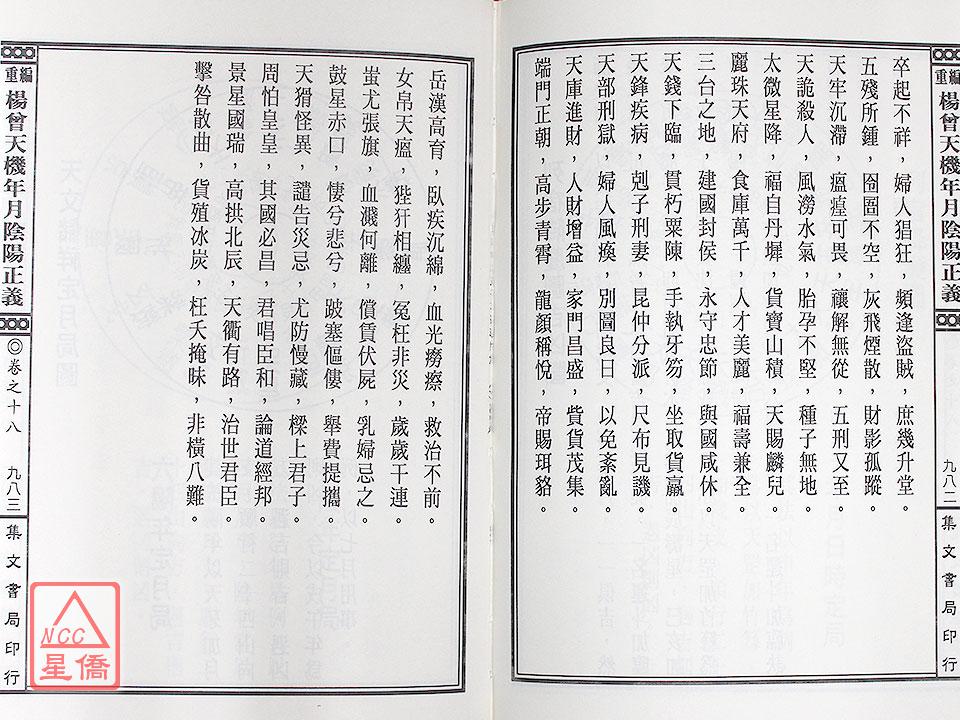 重編 楊曾天機年月陰陽正義
九八二
集文書局印行
卒起不祥，婦人猖狂，頻逢盜賊，庶幾升堂。
五殘所鍾，囹圄不空，灰飛煙散，財影孤蹤。
天牢沉滯，瘟瘟可畏，禳解無從，五刑又至。
天詭殺人，風澇水氣，胎孕不堅，種子無地。
太微星降，福自丹墀，貨寶山積，天賜麟兒。
麗珠天府，食庫萬千，人才美麗，福壽兼全。
三台之地，建國封侯，永守忠節，與國咸休。
天錢下臨，貫朽粟陳，手執牙笏，坐取貨贏。
天鋒疾病，剋子刑妻，昆仲分派，尺布見譏。
天部刑獄，婦人風瘓，別圖良日，以免紊亂。
天庫進財，人財增益，家門昌盛，貲貨茂集。
端門正朝，高步青霄，龍顏稱悅，帝賜珥貂。
岳漢高育，臥疾沉綿，血光癆瘵，救治不前。
女帛天瘟，狴犴相纏，冤枉非災，歲歲干連。
蚩尤張旗，血濺何離，償賃伏屍，乳婦忌之。
鼓星赤口，悽兮悲兮，跛塞傴僂，舉費提攜。
天猾怪異，譴告災忌，尤防慢藏，樑上君子。
周怕皇皇，其國必昌，君唱臣和，論道經邦。
景星國瑞，高拱北辰，天衢有路，治世君臣。
擊咎散曲，貨殖冰炭，枉夭掩昧，非橫八難。
重編 楊曾天機年月陰陽正義
◎卷之十八
九八三
集文書局印行
NCC
星僑